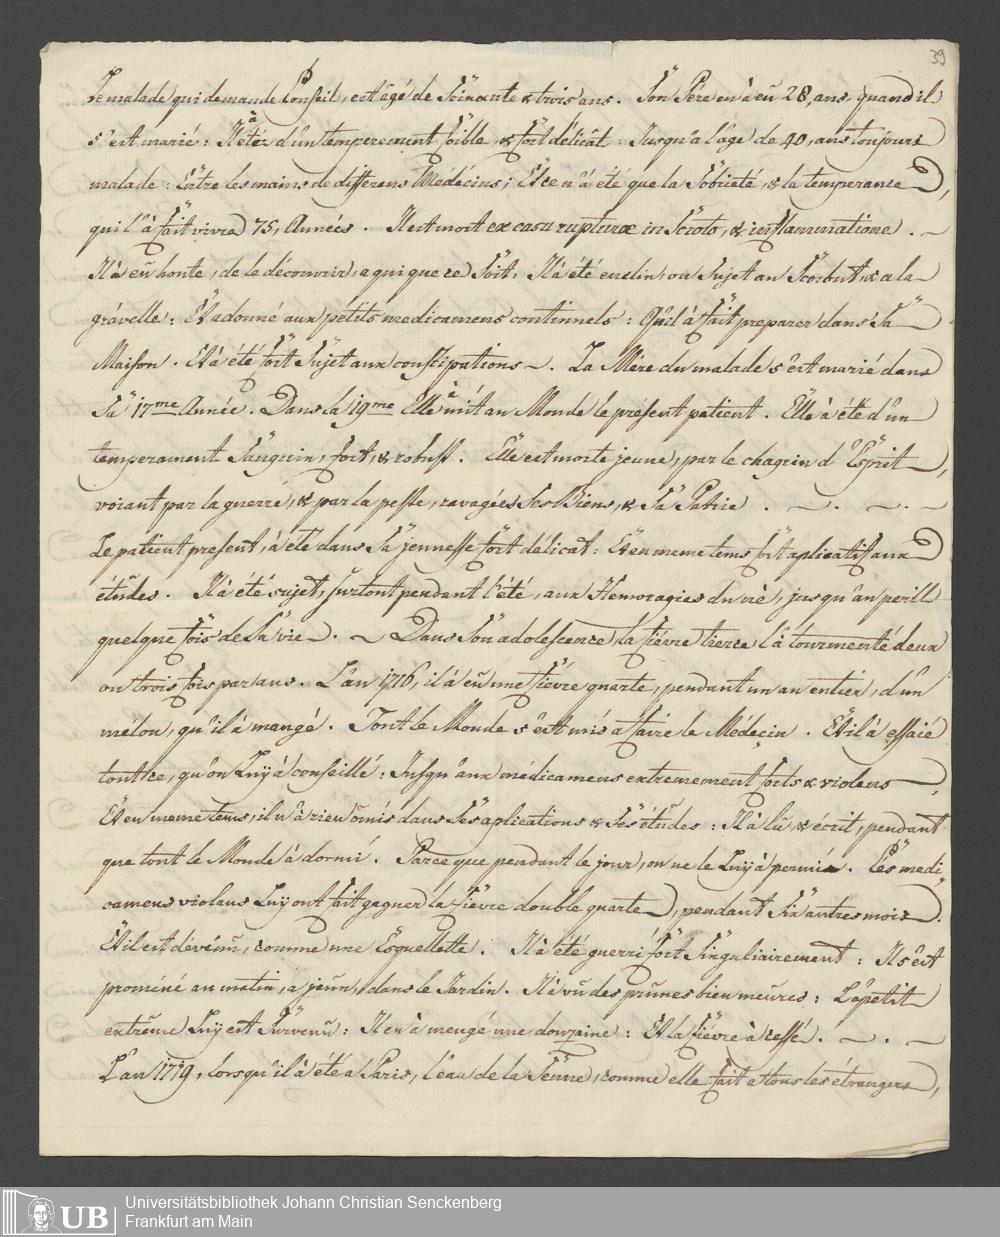 39
Le malade qui demande Conseil, est âgé de Soixante & trois ans. Son Pére en à eû 28, ans, quand il
s'est marié: Il à été d'un temperement foible, & fort délicat: Jusqu'a l'age de 40, ans toujours
malade: Entre les mains de differens Medécins; Et ce n'à été que la Sobrieté, & la temperance,
qui l'à fait vivre 75, Années. Il est mort ex casu rupturæ in Scroto, & inflammatione.
Il à eû honte, de le découvrir, a qui que ce Soit: Il à été enclin, ou Sujet au Scorbut, & a la
grávelle: Et adonné aux pétits medicamens continuels: Qu'il à fait preparer dans Sa
Maison. Et à été fort Sujet aux constipations. La Mére du malade s'est marié dans
Sa 17me Année. Dans la 19me Elle à mit au Monde le présent patient. Elle à été d'un
temperament Sanguin, fort, & robust. Elle est morte jeune, par le chagrin d'Esprit,
voiant par la guerre, & par la peste, ravagées Ses Biens, & Sa Patrie.
Le patient present, à été dans Sa jeunesse fort délicat: Et en meme tems fort aplicatif aux
étúdes. Il à été sujet, surtout pendant l'été, aux Hemoragies du né, jusqu'au perill
quelque fois de Sa vie. Dans Son adolescence, la fiévre tierce l'à tourmenté deux
ou trois fois par ans. L'an 1716, il à eû une fiévre quarte, pendant un an entier, d'un
mélon, qu'il à mangé. Tout le Monde s'est mis a faire le Médecin. Et il à essaié
tout ce, qu'on Luy à conseillé: Jusqu'aux médicamens extremement forts & violens,
Et en meme tems, il n'à rien omis dans Ses aplications & Ses étúdes: Il à lû, & écrit, pendant
que tout le Monde à dormi. Parce que pendant le jour, on ne le Luy à permis. Les medi
camens violans Luy ont fait gagner la fiévre double quarte, pendant Six autres mois.
Et il est dévénú, comme une Esquellette. Il à été guerri fort Singuliairement: Il s'est
proméné au matin, a jeún, dans le Jardin. Il à vû des prúnes bien meures: L'apetit
extréme Luy est Survenú: Il en à mengé une douzaine: Et la fiévre à cessé.
L'an 1719, lorsqu'il à été á Paris, l'eau de la Senne, comme elle fait a tous les étrangers,
Universitätsbibliothek Johann Christian Senckenberg
Frankfurt am Main
UB